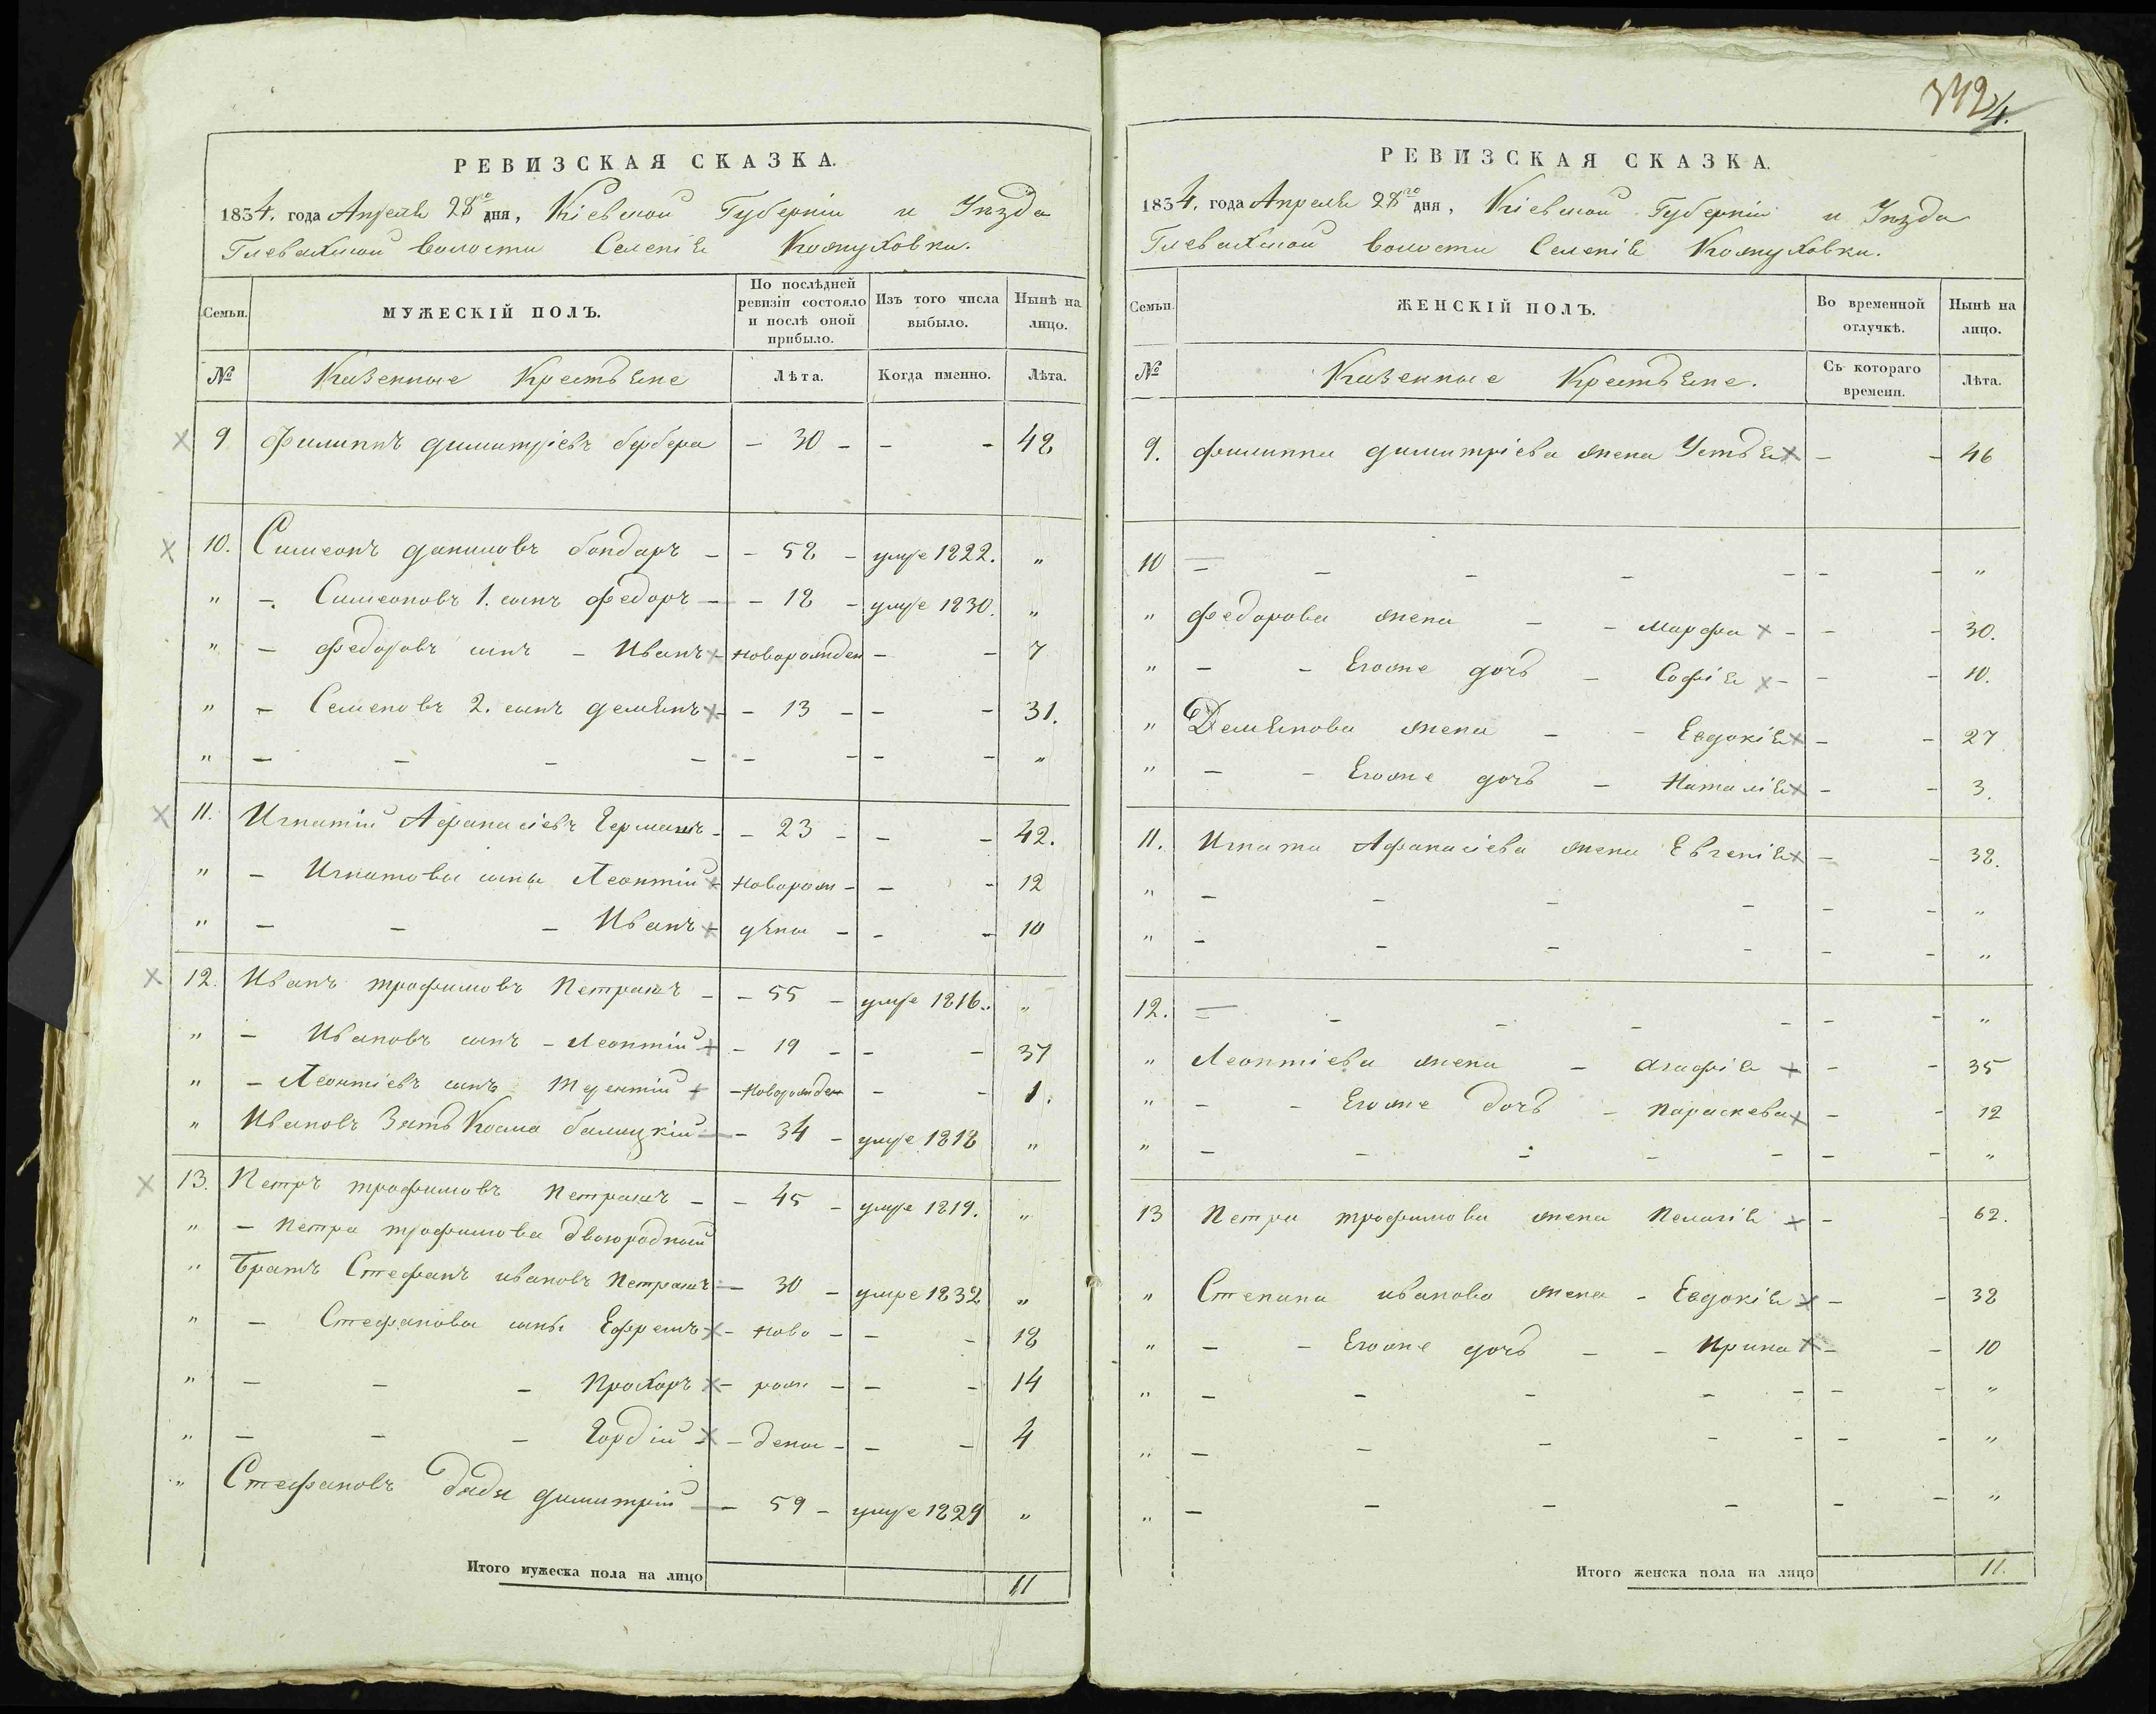 342
4.
РЕВИЗСКАЯ СКАЗКА.
1834. года Апреля 28го дня, Кіевской Губерніи и Уѣзда
Глевахской волости Селенія Кожуховки.
Семьи. МУЖЕСКІЙ ПОЛЪ. По послѣдней ревизіи состояло и послѣ оной прибыло. Изъ того числа выбыло. Нынѣ на лицо.
№ Казенные Крестьяне Лѣта. Когда именно. Лѣта.
9 Филиппъ Димитріевъ Бербера - 30 - - - 48
10. Симеонъ даниловъ бондаръ - - 58 - умре 1822. "
" - Симеоновъ 1. сынъ Федоръ - - 18 - умре 1830. "
" - Федоровъ сынъ - Иванъ - новорожден - - 7
" - Семеновъ 2. сынъ демянъ - - 13 - - - 31.
" - - - - - - - - "
11. Игнатій Афанасіевъ Германъ - - 23 - - - 42.
" - Игнатовы сыны Леонтій - новорож - - - 12
" - - - Иванъ - дены - - - 10
12. Иванъ трофимовъ Петрикъ - - 55 - умре 1816. "
" - Ивановъ сынъ - Леонтій - 19 - - - 37
" - Леонтіевъ сынъ Терентій - новорожден - - 1.
" Ивановъ Зять Косма балицкій - - 34 - умре 1818 "
13. Петръ трофимовъ Петрикъ - - 45 - умре 1819. "
" - Петра трофимова двоюродный
" Братъ Стефанъ ивановъ Петрикъ - 30 - умре 1832 "
" - Стефановы сыны Ефремъ - ново - - - 18
" - - - Прохоръ - рож - - - 14
" - - - Гордій - - дены - - - 4
" Стефановъ дядя димитрій - - 59 - умре 1829 "
Итого мужеска пола на лицо 11
РЕВИЗСКАЯ СКАЗКА.
1834. года Апреля 28го дня, Кіевской Губерніи и Уѣзда
Глевахской волости Селенія Кожуховки.
Семьи. ЖЕНСКІЙ ПОЛЪ. Во временной отлучкѣ. Нынѣ на лицо.
№ Казенные Крестьяне. Съ котораго времени. Лѣта.
9. Филиппа димитріева жена Устья - - 46
10 - - - - - - - "
" Федорова жена - - Марфа - - - 30.
" - - Егоже дочь - Софія - - - 10.
" Демянова жена - - Евдокія - - 27
" - - Егоже дочь - Наталія - - 3.
11. Игната Афанасіева жена Евгенія - - 38.
" - - - - - - "
" - - - - - - "
12. - - - - - - - "
" Леонтіева жена - агафія - - 35
" - - Егоже дочь - параскева - - 12
" - - - - - - - "
13 Петра трофимова жена Пелагія - - 62.
" Степана иванова жена - Евдокія - - 38
" - - Егоже дочь - - Ирина - - 10
" - - - - - - - "
" - - - - - - - "
" - - - - - - "
Итого женска пола на лицо 11.